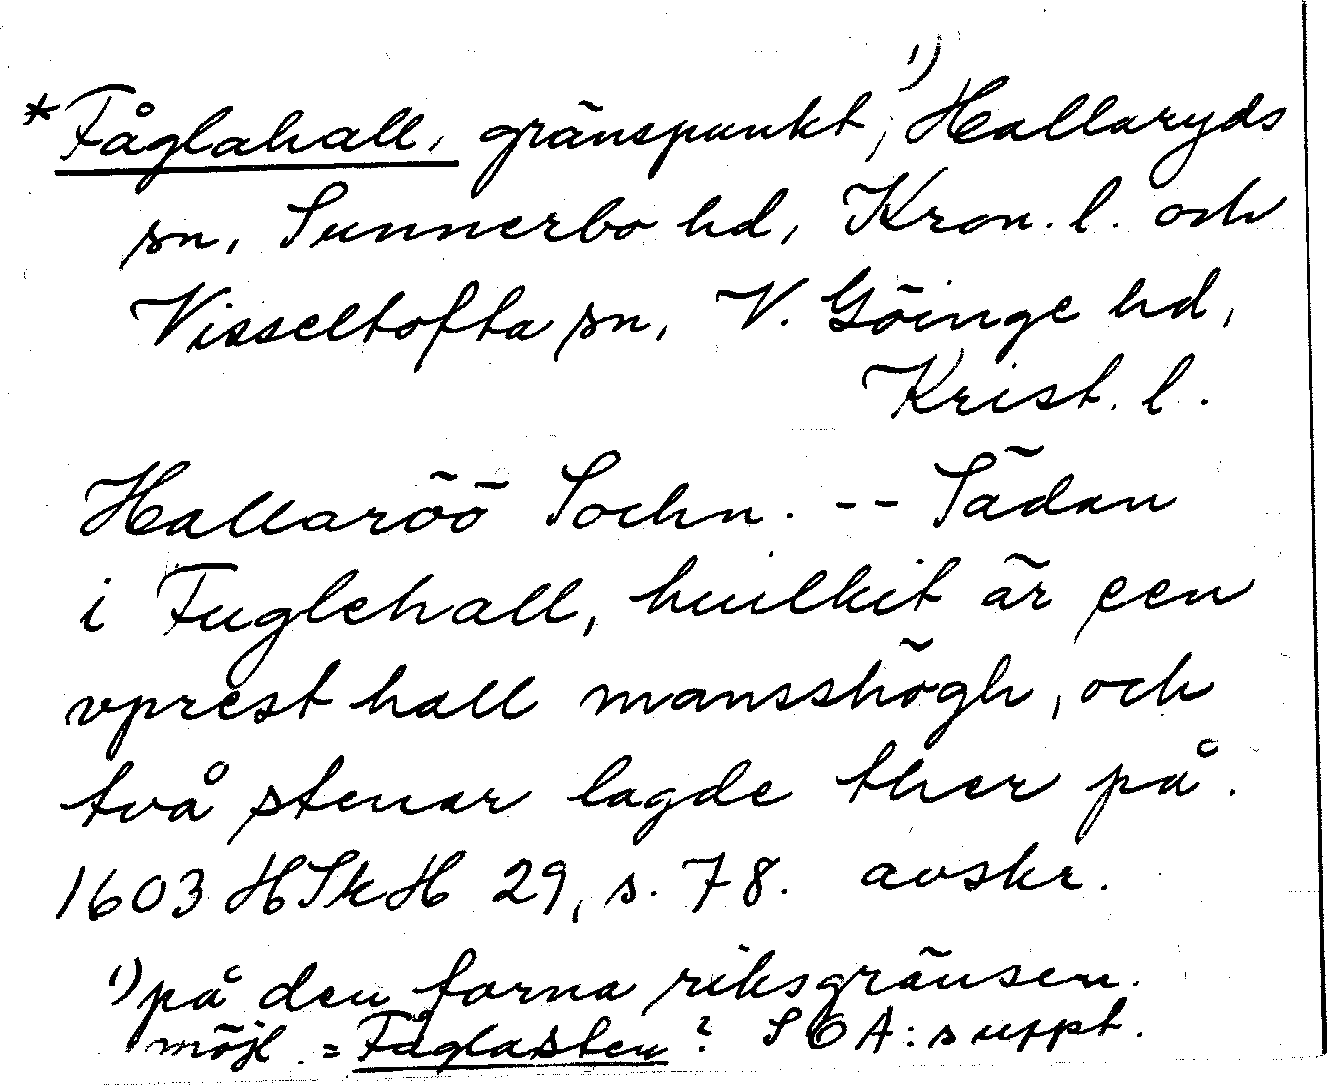 *Fåglahall, gränspunkt,¹) Hallaryds
sn, Sunnerbo hd, Kron. l. och
Visseltofta sn, V. Göinge hd,
Krist. l.
Hallaröö Sochn. -- Sädan
i Fuglehall, huilkit är een
vprest hall mansshögh, och
två stenar lagde ther på.
1603 HSkH 29, s. 78. avskr.
¹) på den forna riksgränsen.
möjl. = Fåglasten? SOA:s uppt.